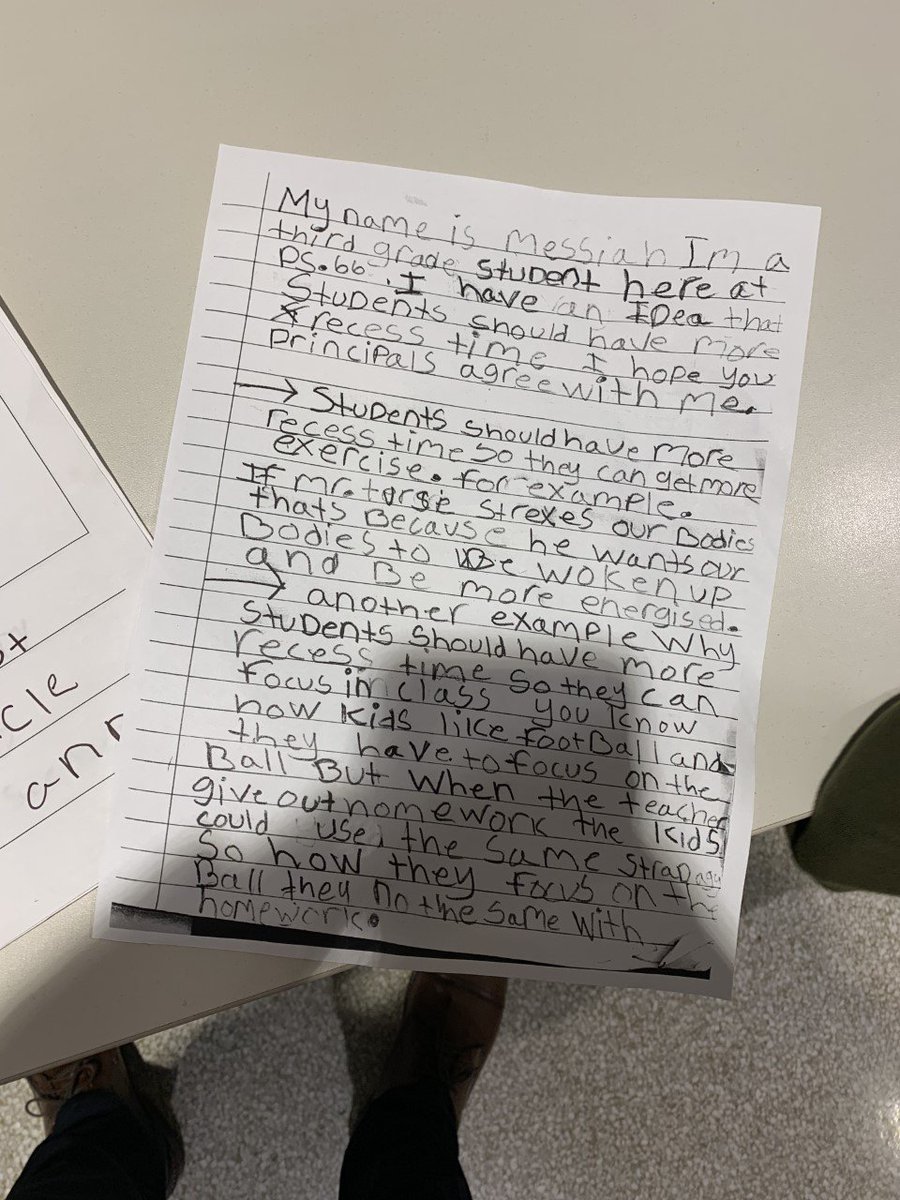 My name is Messiah Im a
third grade student here at
PS.66 I have an IDea that
Students should have more
recess time I hope you
Principals agree with me.
→ Students should have more
recess time so they can get more
exercise. for example.
If mr. strexes our Bodies
thats Because he wants our
Bodies to Be woken up
and Be more energised.
→ another example Why
Students should have more
recess time so they can
focus in class you know
how kids like footBall and
they have to focus on the
Ball But When the teacher
give out homework the kids
could use the same
So how they focus on the
Ball they no the same With
homework.
cle
ann